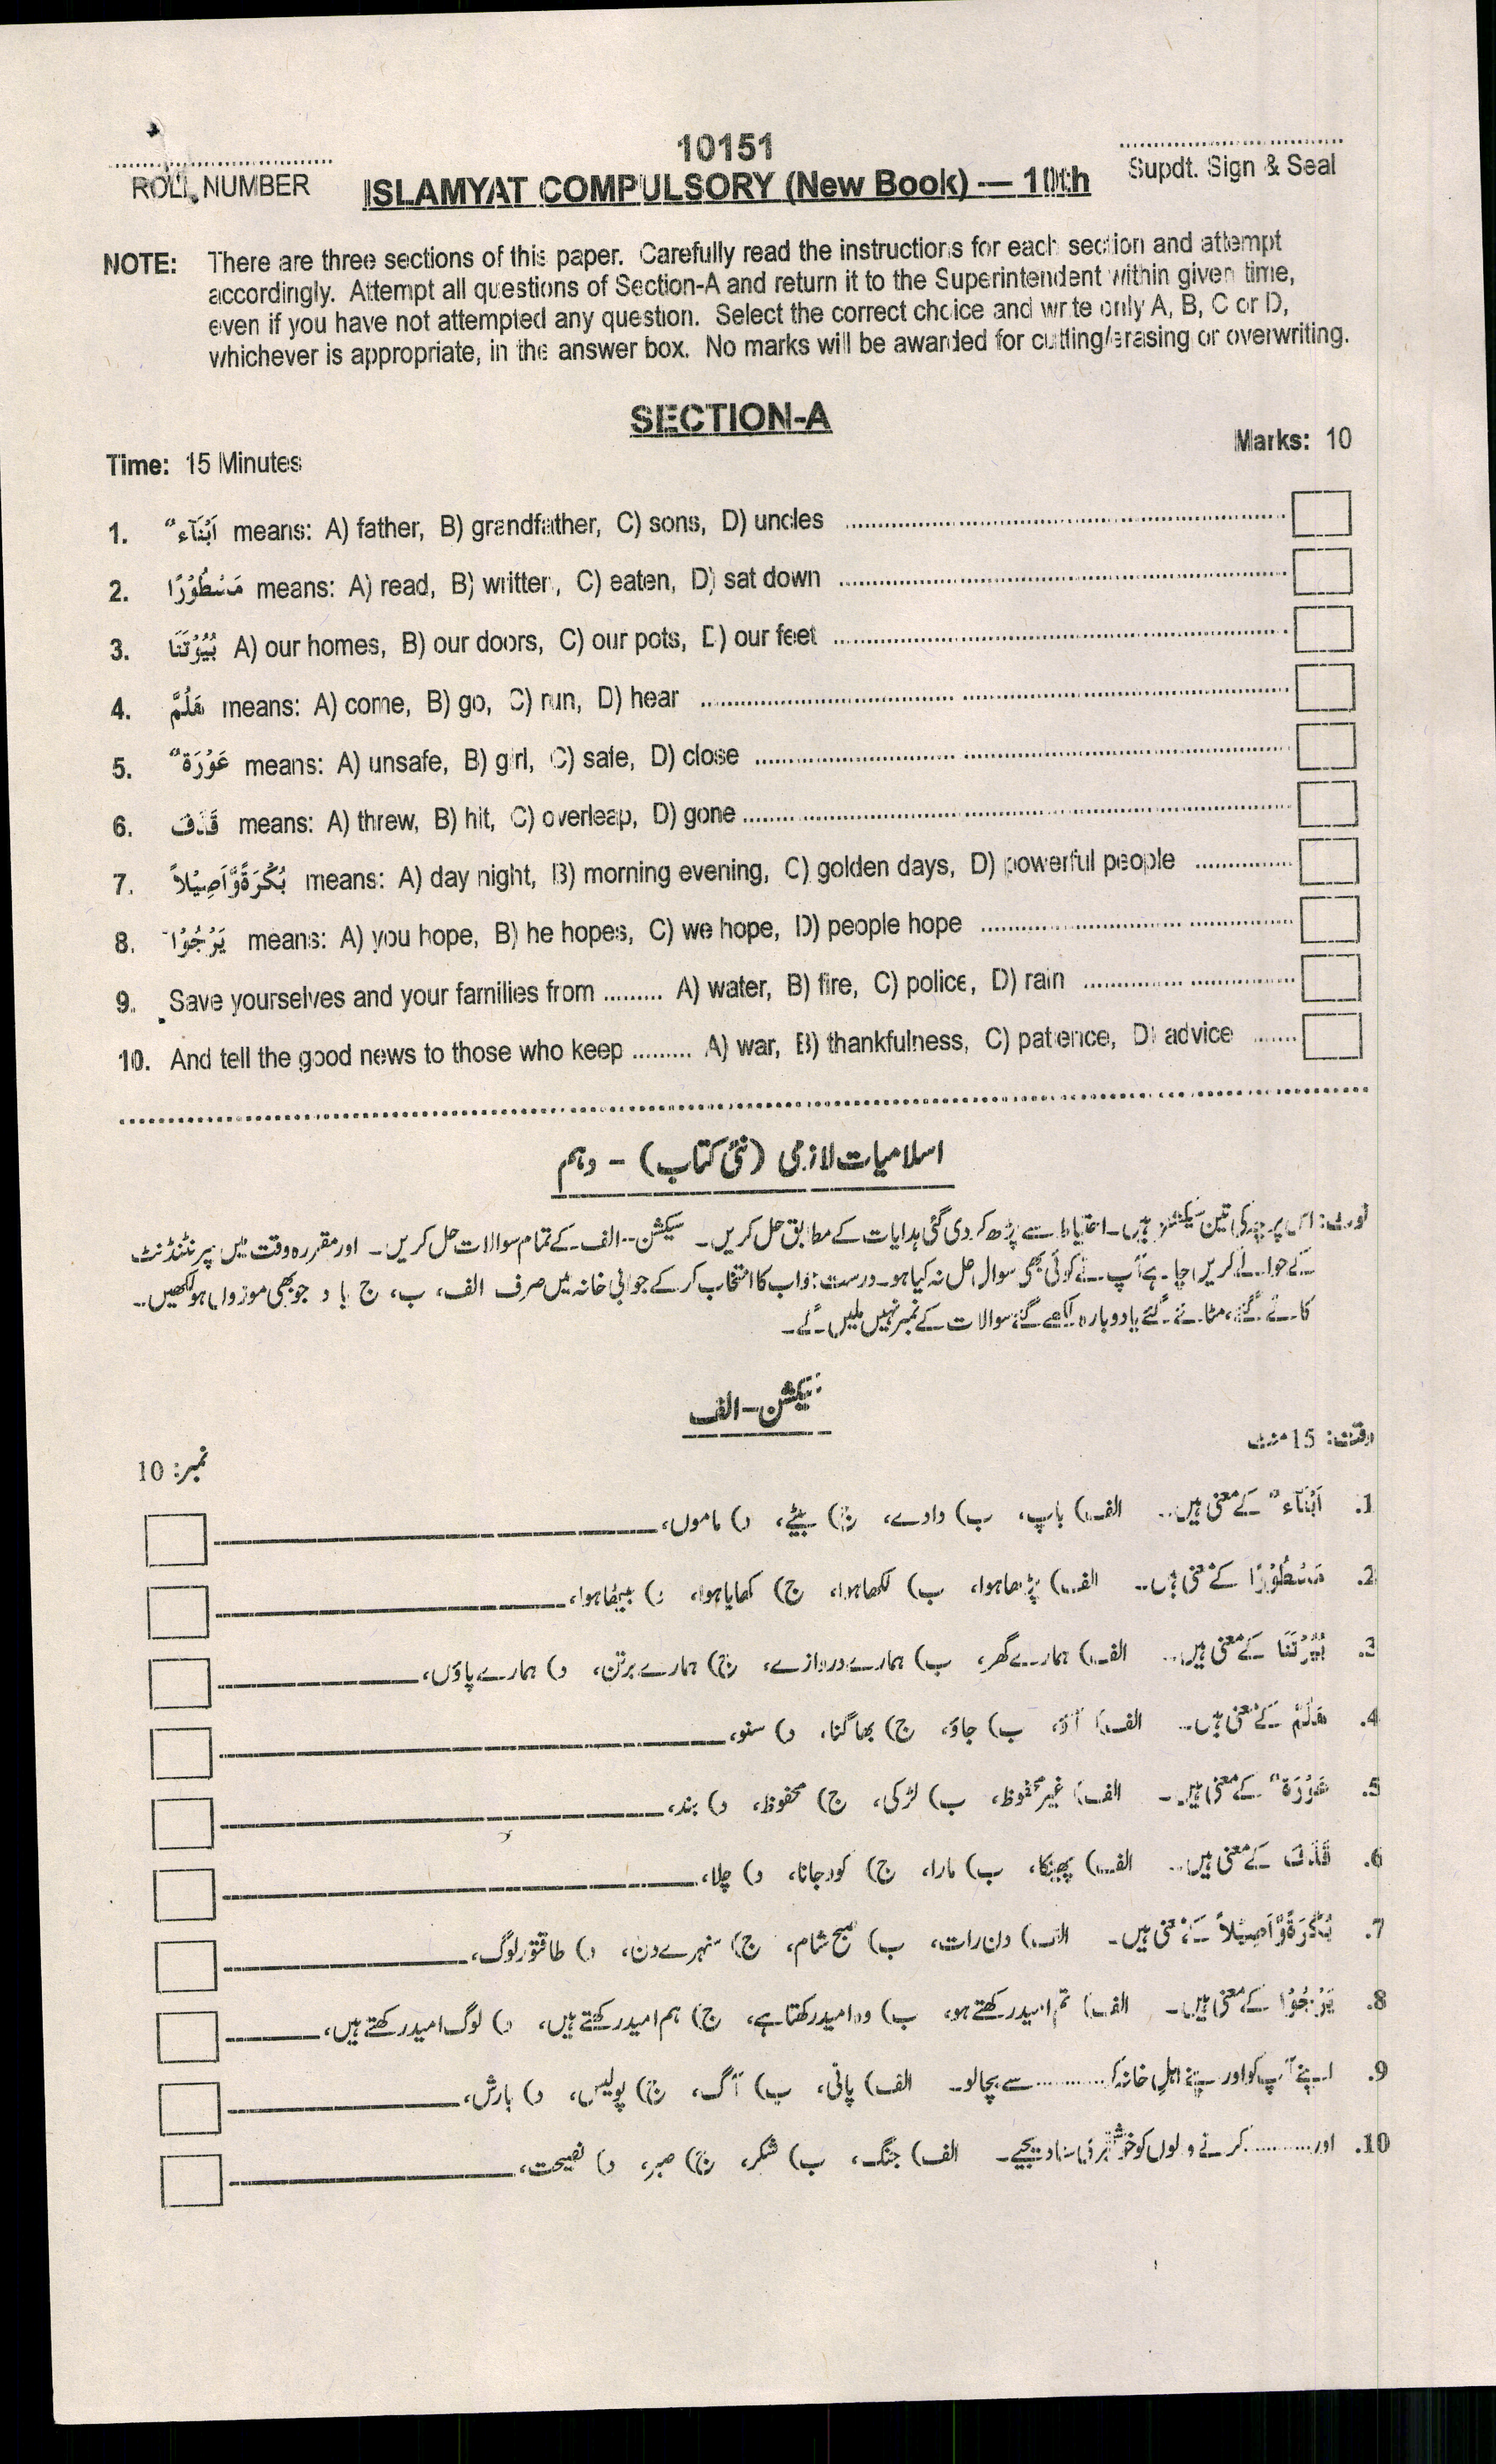 10151
ROLL NUMBER
ISLAMYAT COMPULSORY (New Book) — 10th
Supdt. Sign & Seal
NOTE: There are three sections of this paper. Carefully read the instructions for each section and attempt
accordingly. Attempt all questions of Section-A and return it to the Superintendent within given time,
even if you have not attempted any question. Select the correct choice and write only A, B, C or D,
whichever is appropriate, in the answer box. No marks will be awarded for cutting/erasing or overwriting.
SECTION-A
Time: 15 Minutes
Marks: 10
1. اَبْنَآءٌ means: A) father, B) grandfather, C) sons, D) uncles
2. مَسْطُوْرًا means: A) read, B) written, C) eaten, D) sat down
3. بُيُوْتَنَا A) our homes, B) our doors, C) our pots, D) our feet
4. هَلُمَّ means: A) come, B) go, C) run, D) hear
5. عَوْرَةٌ means: A) unsafe, B) girl, C) safe, D) close
6. قَذَفَ means: A) threw, B) hit, C) overleap, D) gone
7. بُكْرَةً وَّاَصِيْلاً means: A) day night, B) morning evening, C) golden days, D) powerful people
8. يَرْجُوْا means: A) you hope, B) he hopes, C) we hope, D) people hope
9. Save yourselves and your families from ......... A) water, B) fire, C) police, D) rain
10. And tell the good news to those who keep ......... A) war, B) thankfulness, C) patience, D) advice
اسلامیات لازمی (نئی کتاب) - دہم
نوٹ: اس پرچہ کی تین سیکشنز ہیں۔ احتیاط سے پڑھ کر دی گئی ہدایات کے مطابق حل کریں۔ سیکشن-الف کے تمام سوالات حل کریں۔ اور مقررہ وقت میں سپرنٹنڈنٹ
کے حوالے کریں چاہے آپ نے کوئی بھی سوال حل نہ کیا ہو۔ درست جواب کا انتخاب کر کے جوابی خانہ میں صرف الف، ب، ج یا د جو بھی موزوں ہو لکھیں۔
کاٹے گئے، مٹائے گئے یا دوبارہ لکھے گئے سوالات کے نمبر نہیں ملیں گے۔
سیکشن-الف
وقت: 15 منٹ
نمبر: 10
1. اَبْنَآءٌ کے معنی ہیں۔ الف) باپ، ب) دادے، ج) بیٹے، د) ماموں،
2. مَسْطُوْرًا کے معنی ہیں۔ الف) پڑھا ہوا، ب) لکھا ہوا، ج) کھایا ہوا، د) بیٹھا ہوا،
3. بُيُوْتَنَا کے معنی ہیں۔ الف) ہمارے گھر، ب) ہمارے دروازے، ج) ہمارے برتن، د) ہمارے پاؤں،
4. هَلُمَّ کے معنی ہیں۔ الف) آؤ، ب) جاؤ، ج) بھاگنا، د) سنو،
5. عَوْرَةٌ کے معنی ہیں۔ الف) غیر محفوظ، ب) لڑکی، ج) محفوظ، د) بند،
6. قَذَفَ کے معنی ہیں۔ الف) پھینکا، ب) مارا، ج) کود جانا، د) چلا،
7. بُكْرَةً وَّاَصِيْلاً کے معنی ہیں۔ الف) دن رات، ب) صبح شام، ج) سنہرے دن، د) طاقتور لوگ،
8. يَرْجُوْا کے معنی ہیں۔ الف) تم امید رکھتے ہو، ب) وہ امید رکھتا ہے، ج) ہم امید رکھتے ہیں، د) لوگ امید رکھتے ہیں،
9. اپنے آپ کو اور اپنے اہل خانہ کو ......... سے بچا لو۔ الف) پانی، ب) آگ، ج) پولیس، د) بارش،
10. اور ......... کرنے والوں کو خوشخبری سنا دیجیے۔ الف) جنگ، ب) شکر، ج) صبر، د) نصیحت،